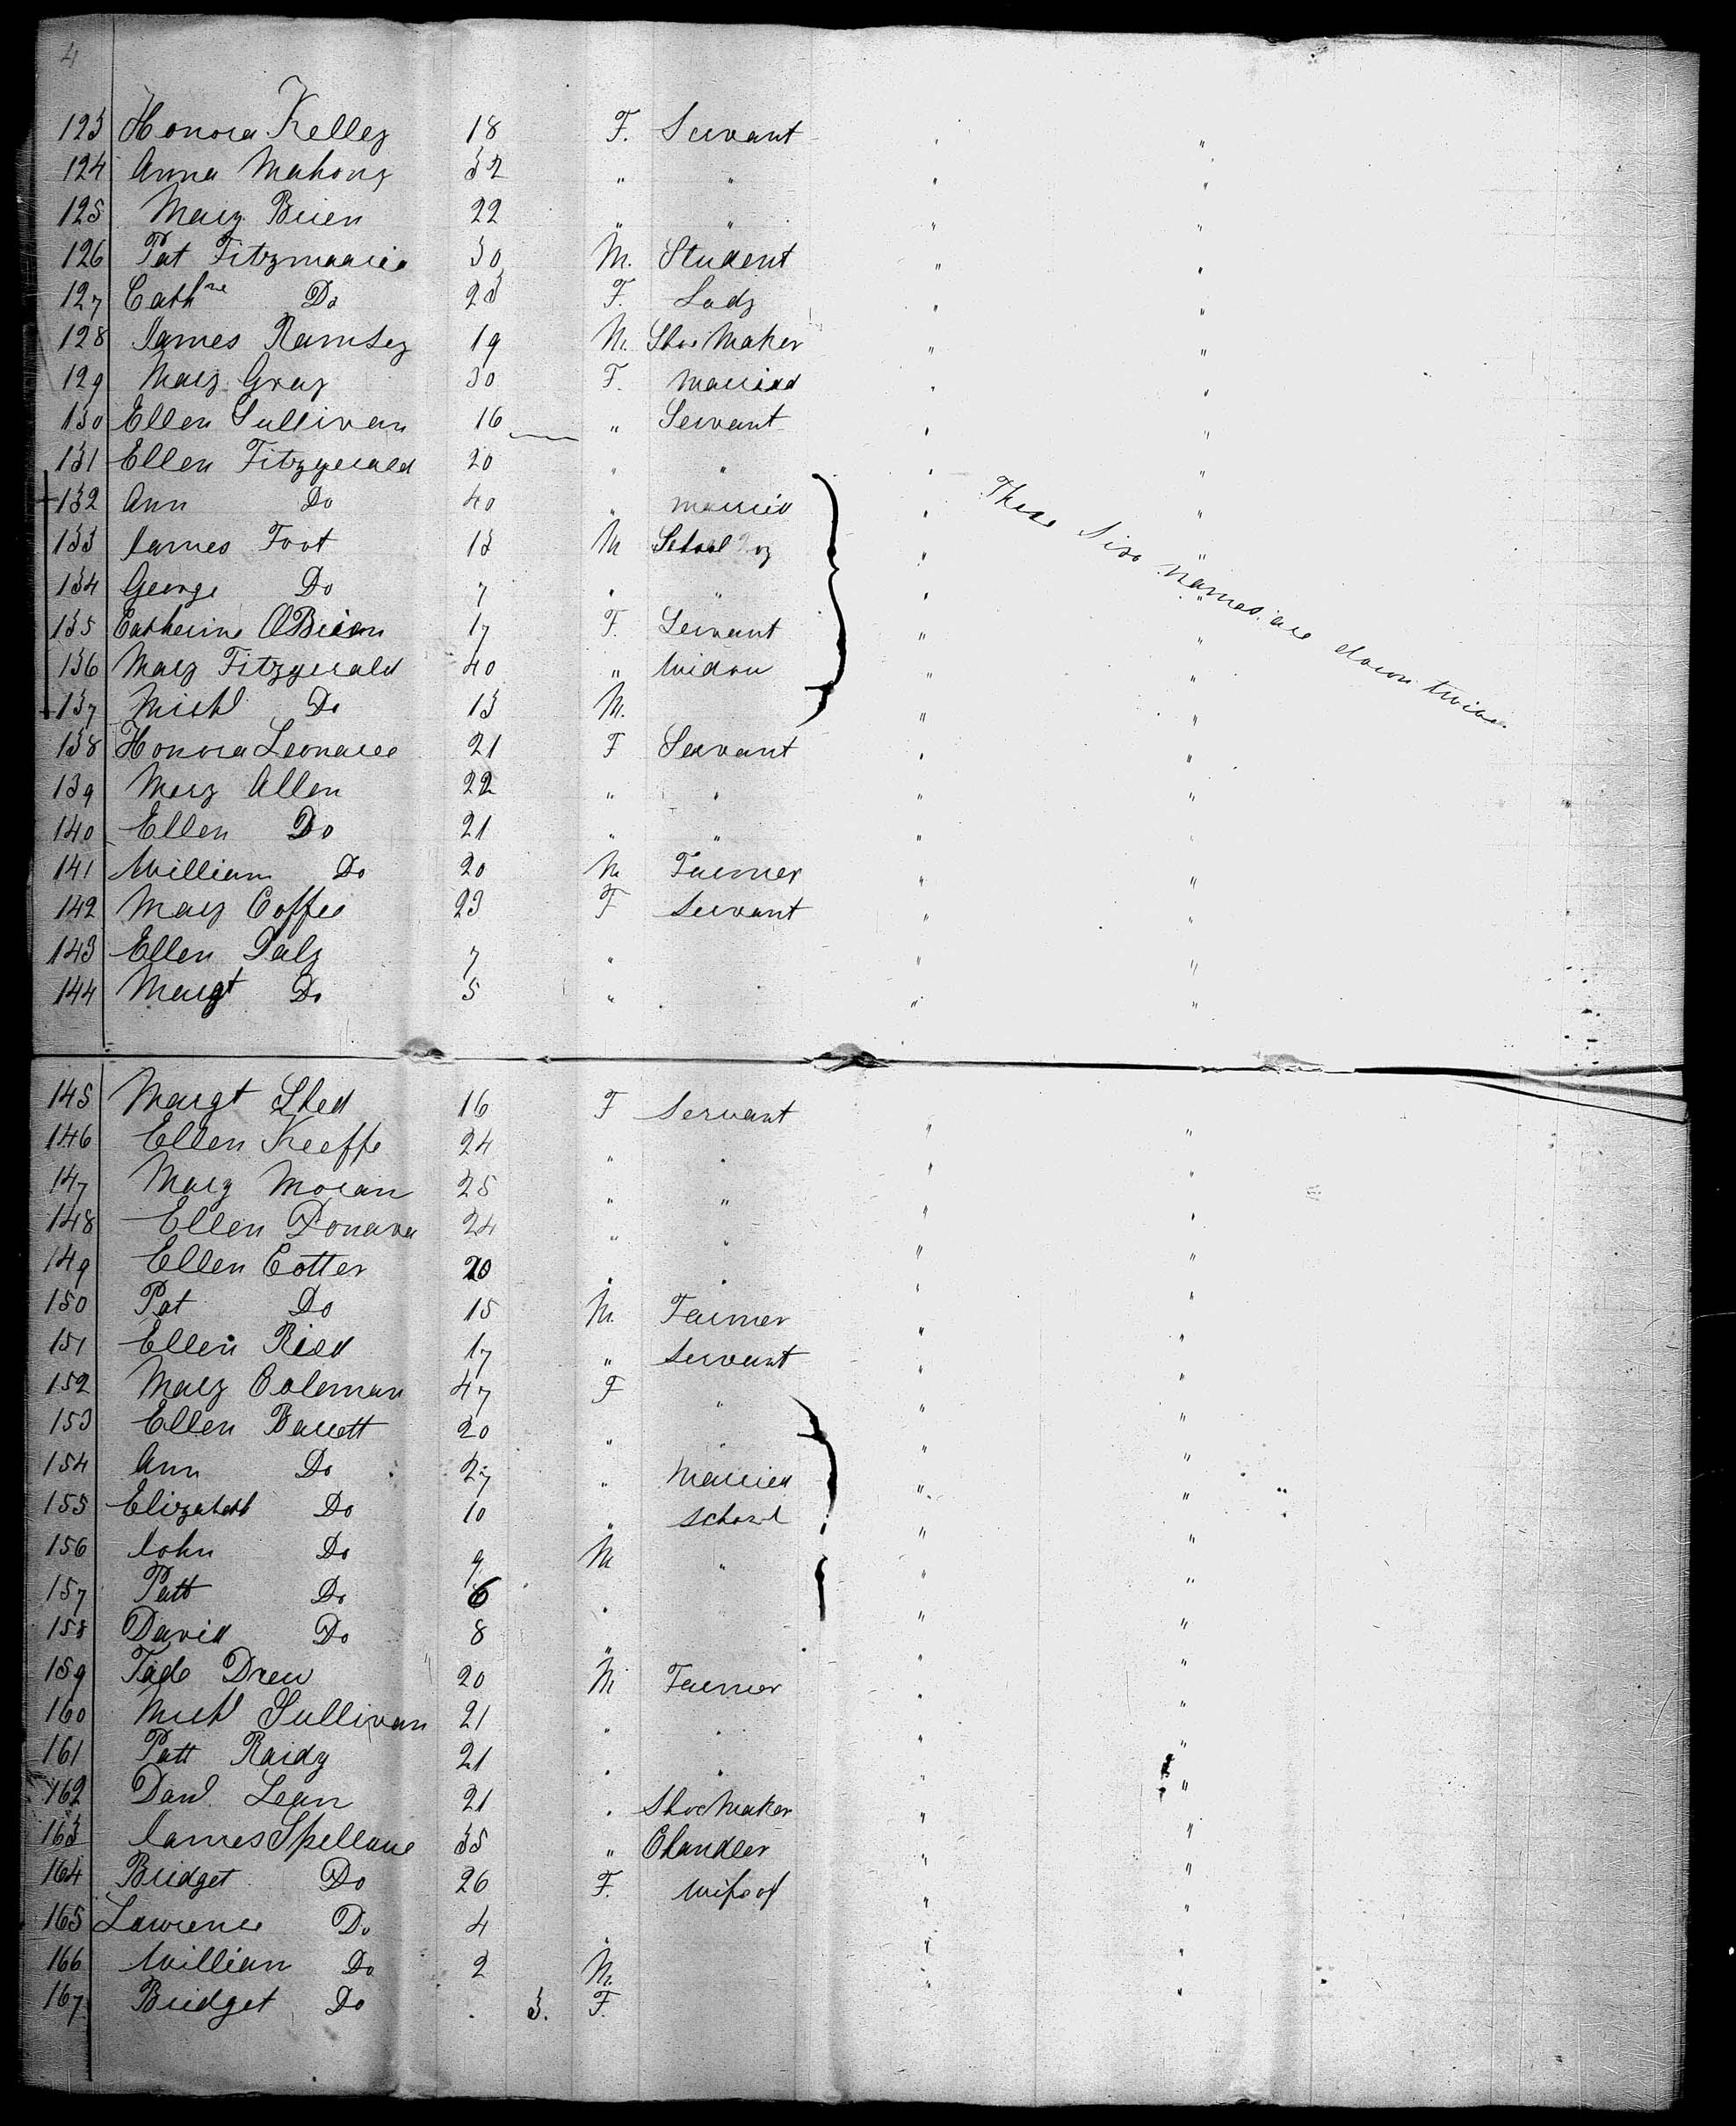 4
123 Honora Kelley 18 F. Servant " "
124 Anna Mahony 32 " " " "
125 Mary Brien 22 " " " "
126 Pat Fitzmaurice 30 M. Student " "
127 Cathne Do 23 F. Lady " "
128 James Ramsey 19 M. Shoe Maker " "
129 Mary Gray 30 F. Married " "
130 Ellen Sullivan 16 " Servant " "
131 Ellen Fitzgerald 20 " " " "
132 Ann Do 40 " Married " "
These Six names are down twice.
133 James Foot 13 M School Boy " "
134 George Do 7 " " " "
135 Catherine OBrien 17 F. Servant " "
136 Mary Fitzgerald 40 " Widow " "
137 Michl Do 13 M. " "
138 Honora Leonard 21 F Servant " "
139 Mary Allen 22 " " " "
140 Ellen Do 21 " " " "
141 William Do 20 M Farmer " "
142 Mary Coffee 23 F Servant " "
143 Ellen Daly 7 " " "
144 Margt Do 5 " " "
145 Margt Shed 16 F Servant " "
146 Ellen Keeffe 24 " " " "
147 Mary Moran 25 " " " "
148 Ellen Donava 24 " " " "
149 Ellen Cotter 20 " " " "
150 Pat Do 15 M. Farmer " "
151 Ellen Ried 17 " Servant " "
152 Mary Coleman 47 F " " "
153 Ellen Barrett 20 " " " "
154 Ann Do 27 " Married " "
155 Elizabeth Do 10 " School " "
156 John Do 9 M " " "
157 Patt Do 6 " " "
158 David Do 8 " " "
159 Tade Drew 20 M Farmer " "
160 Michl Sullivan 21 " " " "
161 Patt Raidy 21 " " " "
162 Danl. Lean 21 " Shoe Maker " "
163 James Spellane 35 " Chandler " "
164 Bridget Do 26 F. Wife of " "
165 Lawrence Do 4 " " "
166 William Do 2 M. " "
167 Bridget Do . 3. F.